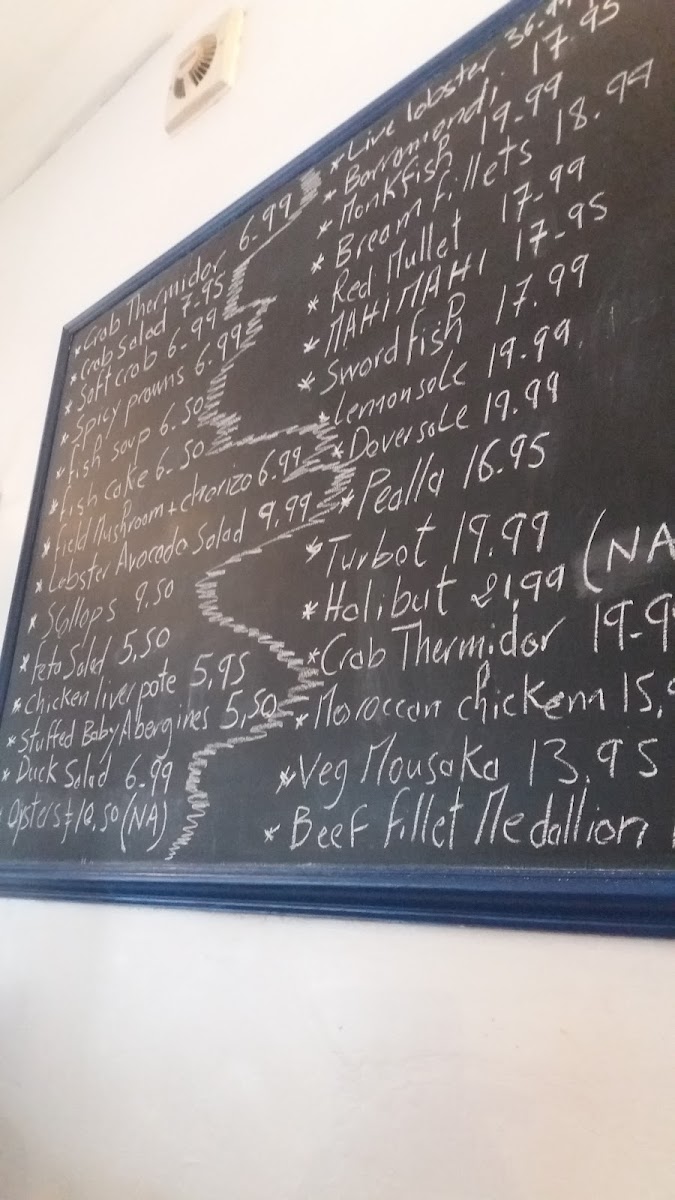 * Crab Thermidor 6-99
* Crab Salad 7-95
* Soft crab 6-99
* Spicy prawns 6.99
* fish soup 6.50
* fish cake 6-50
* field Mushroom + chorizo 6.99
* Lobster Avocado Salad 9.99
* Scllops 9.50
* feta Salad 5,50
* chicken liver pate 5,95
* Stuffed Baby Abergines 5,50
* Duck Salad 6.99
Oysters 10,50 (NA)
* Live lobster 36.99
* Barramondi 17.95
* Monkfish 19.99
* Bream fillets 18.99
* Red Mullet 17-99
* MAHI MAHI 17-95
* Swordfish 17.99
* Lemon sole 19.99
* Dover sole 19.99
* Pealla 16.95
* Turbot 19.99
* Halibut 21,99 (NA
* Crab Thermidor 19-9
* Moroccan chickenn 15,
* Veg Mousaka 13.95
* Beef fillet Medallion